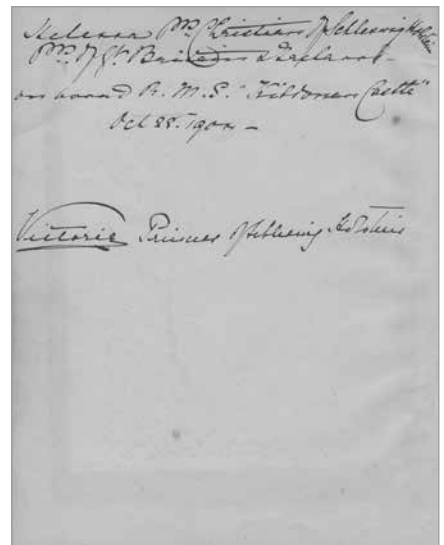 Helena Pss. Christian of Schleswig Holstein
Pss. of Gt. Britain & Ireland
on board R.M.S. "Kildonan Castle"
Oct 28. 1904 –
Victoria Princess of Schleswig Holstein